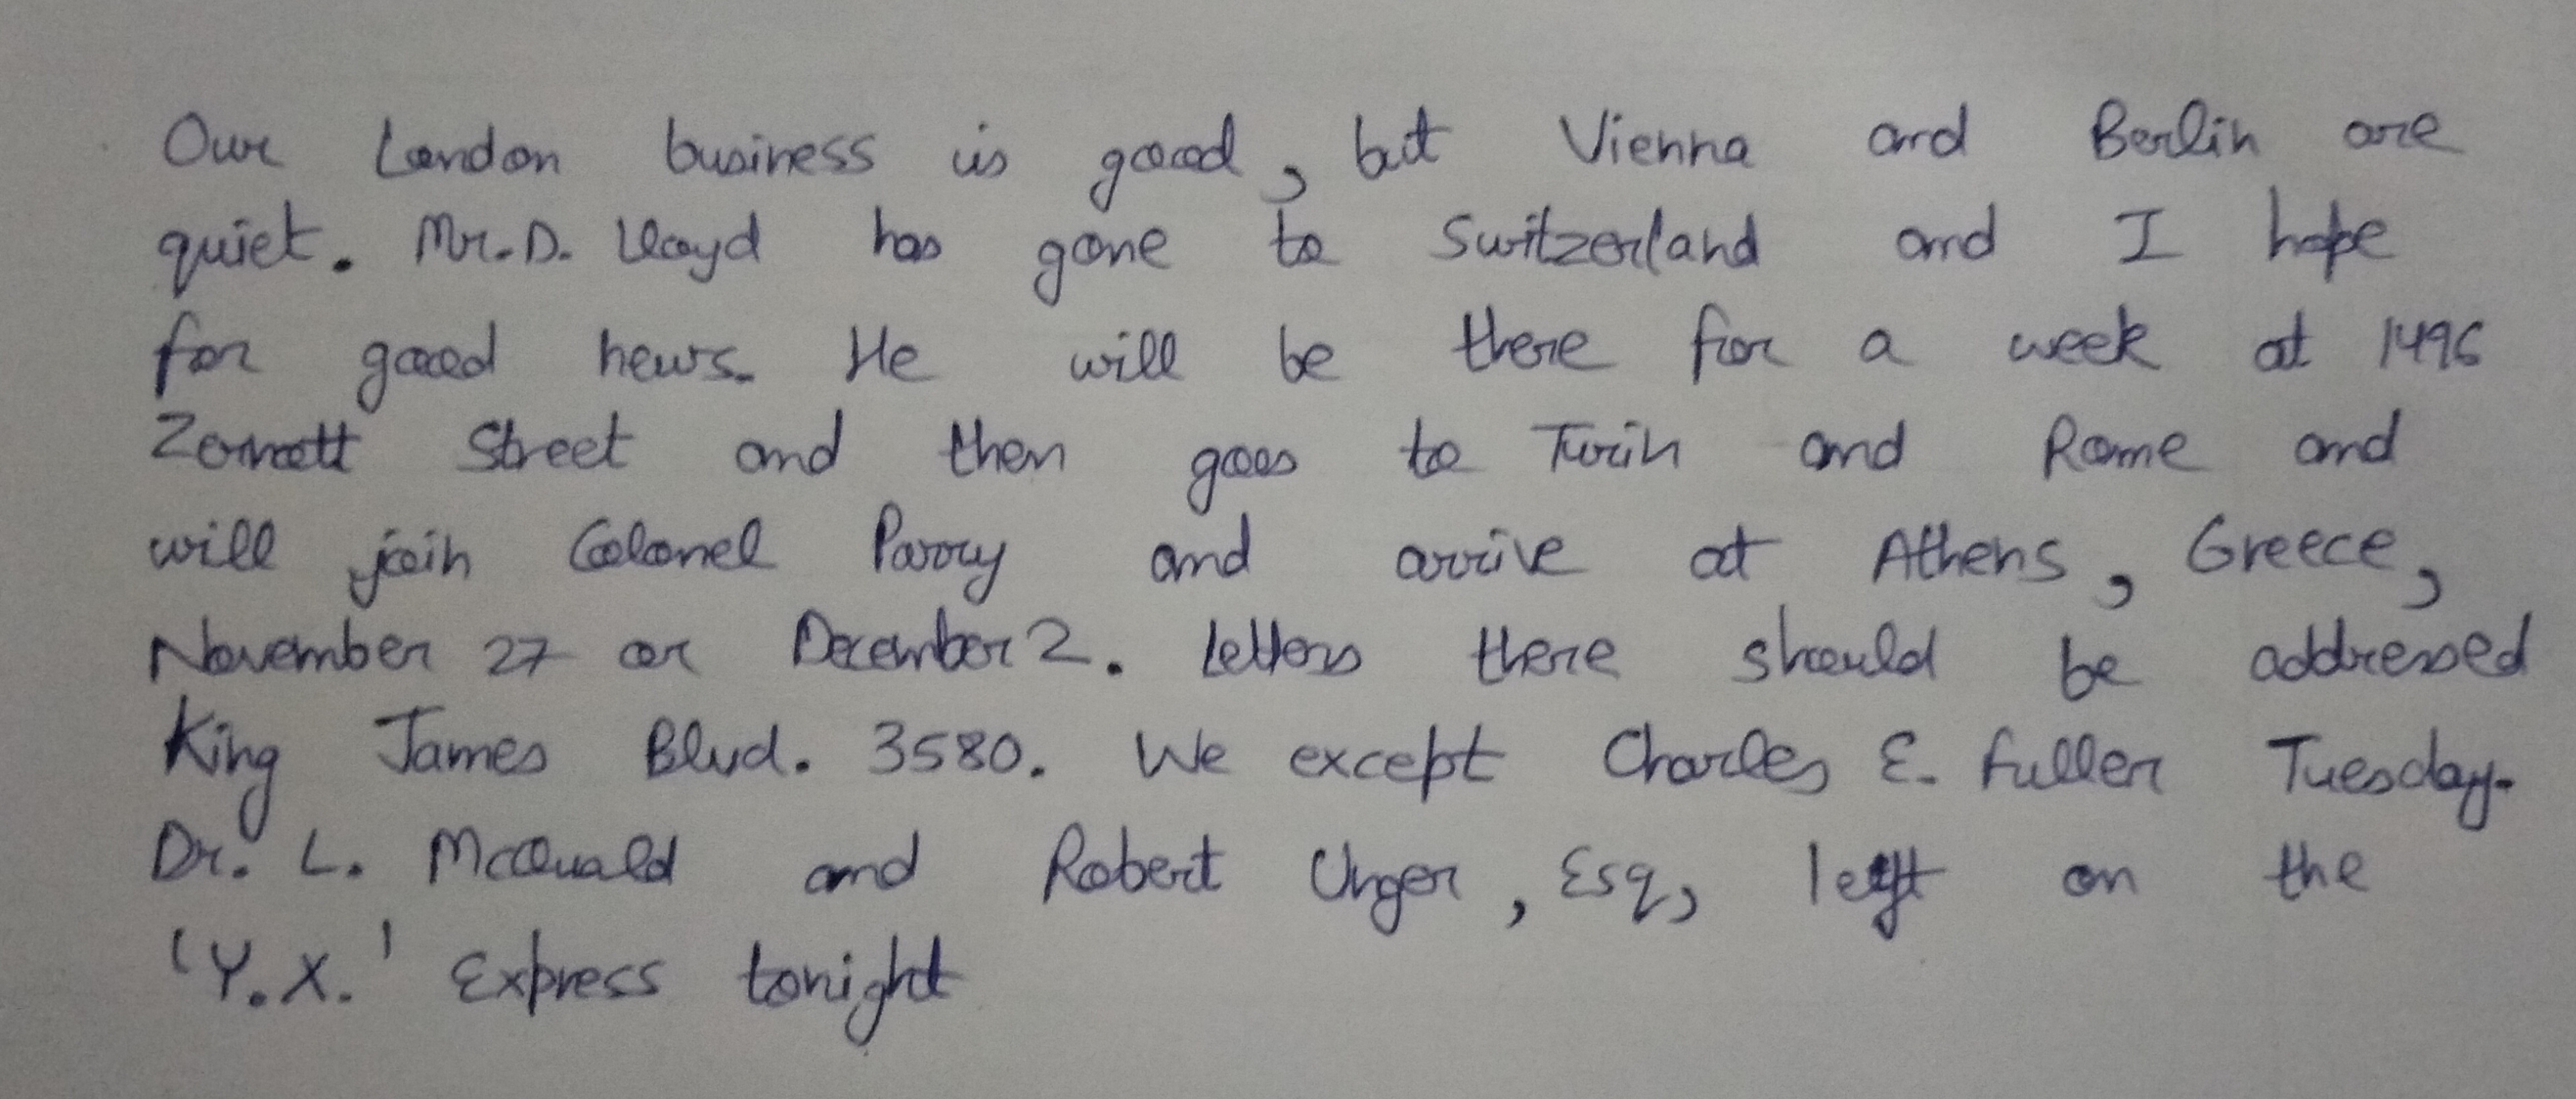 Our London business is good, but Vienna and Berlin are
quiet. Mr. D. Lloyd has gone to Switzerland and I hope
for good news. He will be there for a week at 1496
Zermott Street and then goes to Turin and Rome and
will join Colonel Parry and arrive at Athens, Greece,
November 27 or December 2. Letters there should be addressed
King James Blvd. 3580. We except Charles E. Fuller Tuesday.
Dr. L. McQuald and Robert Unger, Esq, left on the
'Y.X.' Express tonight